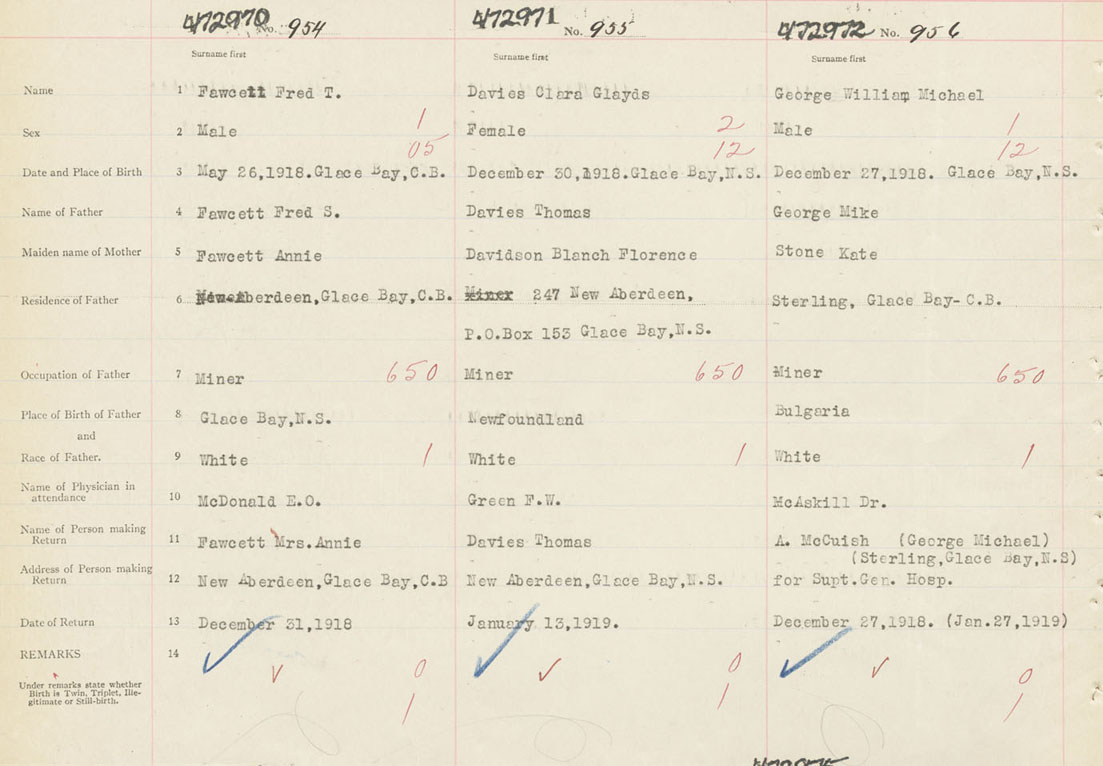 472970 No. 954 472971 No. 955 472972 No. 956
Surname first Surname first Surname first
Name 1 Fawcett Fred T. Davies Clara Glayds George William Michael
1 2 1
Sex 2 Male Female Male
05 12 12
Date and Place of Birth 3 May 26,1918.Glace Bay,C.B. December 30,1918.Glace Bay,N.S. December 27,1918. Glace Bay,N.S.
Name of Father 4 Fawcett Fred S. Davies Thomas George Mike
Maiden name of Mother 5 Fawcett Annie Davidson Blanch Florence Stone Kate
Residence of Father 6 Aberdeen,Glace Bay,C.B. Miner 247 New Aberdeen, Sterling, Glace Bay- C.B.
P.O.Box 153 Glace Bay,N.S.
Occupation of Father 7 Miner 650 Miner 650 Miner 650
Place of Birth of Father 8 Glace Bay,N.S. Newfoundland Bulgaria
and
Race of Father. 9 White 1 White 1 White 1
Name of Physician in
attendance 10 McDonald E.O. Green F.W. McAskill Dr.
Name of Person making
Return 11 Fawcett Mrs.Annie Davies Thomas A. McCuish (George Michael)
(Sterling,Glace Bay,N.S)
Address of Person making
Return 12 New Aberdeen,Glace Bay,C.B New Aberdeen,Glace Bay,N.S. for Supt.Gen. Hosp.
Date of Return 13 December 31,1918 January 13,1919. December 27,1918. (Jan.27,1919)
REMARKS 14
0 0 0
Under remarks state whether
Birth is Twin, Triplet, Ille-
gitimate or Still-birth.
1 1 1